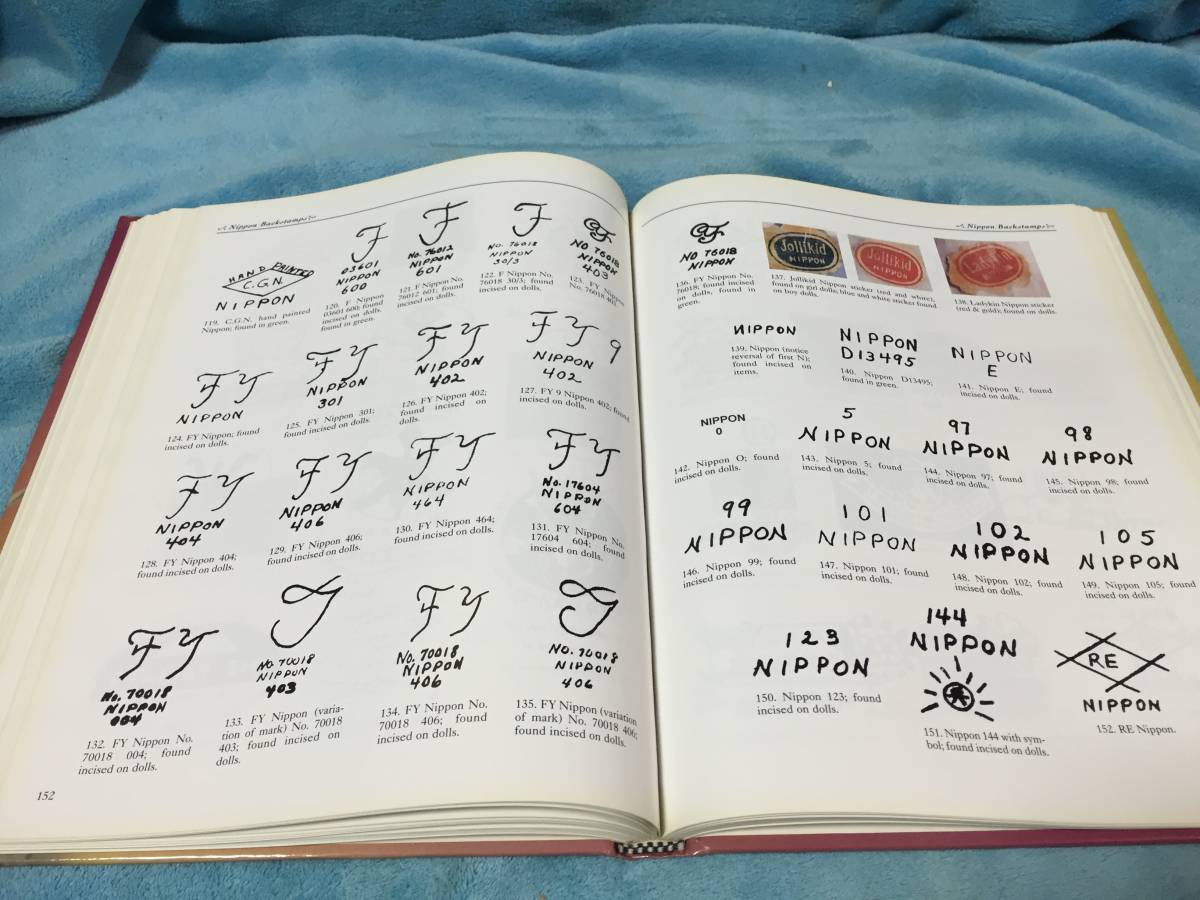 Nippon Backstamps
HAND PAINTED
C.G.N.
NIPPON
119. C.G.N. hand painted
Nippon; found in green.
F
03601
NIPPON
600
120. F Nippon
03601 600; found
incised on dolls.
found in green.
F
No. 76012
NIPPON
601
121. F Nippon No.
76012 601; found
incised on dolls.
F
No. 76018
NIPPON
30/3
122. F Nippon No.
76018 30/3; found
incised on dolls.
NO 76018
NIPPON
403
123. FY Nippon
No. 76018 403.
FY
NIPPON
124. FY Nippon; found
incised on dolls.
FY
NIPPON
301
125. FY Nippon 301;
found incised on
dolls.
FY
NIPPON
402
126. FY Nippon 402;
found incised on
dolls.
FY 9
NIPPON
402
127. FY 9 Nippon 402; found
incised on dolls.
FY
NIPPON
404
128. FY Nippon 404;
found incised on dolls.
FY
NIPPON
406
129. FY Nippon 406;
found incised on dolls.
FY
NIPPON
464
130. FY Nippon 464;
found incised on dolls.
FY
No. 17604
NIPPON
604
131. FY Nippon No.
17604 604; found
incised on dolls.
FY
No. 70018
NIPPON
004
132. FY Nippon No.
70018 004; found
incised on dolls.
No. 70018
NIPPON
403
133. FY Nippon (varia-
tion of mark) No. 70018
403; found incised on
dolls.
FY
No. 70018
NIPPON
406
134. FY Nippon No.
70018 406; found
incised on dolls.
No. 70018
NIPPON
406
135. FY Nippon (variation
of mark) No. 70018 406;
found incised on dolls.
152
Nippon Backstamps
NO 76018
NIPPON
136. FY Nippon No.
76018; found incised
on dolls, found in
green.
Jollikid
NIPPON
Jollikid
NIPPON
137. Jollikid Nippon sticker (red and white),
found on girl dolls; blue and white sticker found
on boy dolls.
138. Ladykin Nippon sticker
(red & gold); found on dolls.
NIPPON
139. Nippon (notice
reversal of first N);
found incised on
items.
NIPPON
D13495
140. Nippon D13495;
found in green.
NIPPON
E
141. Nippon E, found
incised on dolls.
NIPPON
O
142. Nippon O; found
incised on dolls.
5
NIPPON
143. Nippon 5; found
incised on dolls.
97
NIPPON
144. Nippon 97; found
incised on dolls.
98
NIPPON
145. Nippon 98; found
incised on dolls.
99
NIPPON
146. Nippon 99; found
incised on dolls.
101
NIPPON
147. Nippon 101; found
incised on dolls.
102
NIPPON
148. Nippon 102; found
incised on dolls.
105
NIPPON
149. Nippon 105; found
incised on dolls.
123
NIPPON
150. Nippon 123; found
incised on dolls.
144
NIPPON
151. Nippon 144 with sym-
bol; found incised on dolls.
RE
NIPPON
152. RE Nippon.